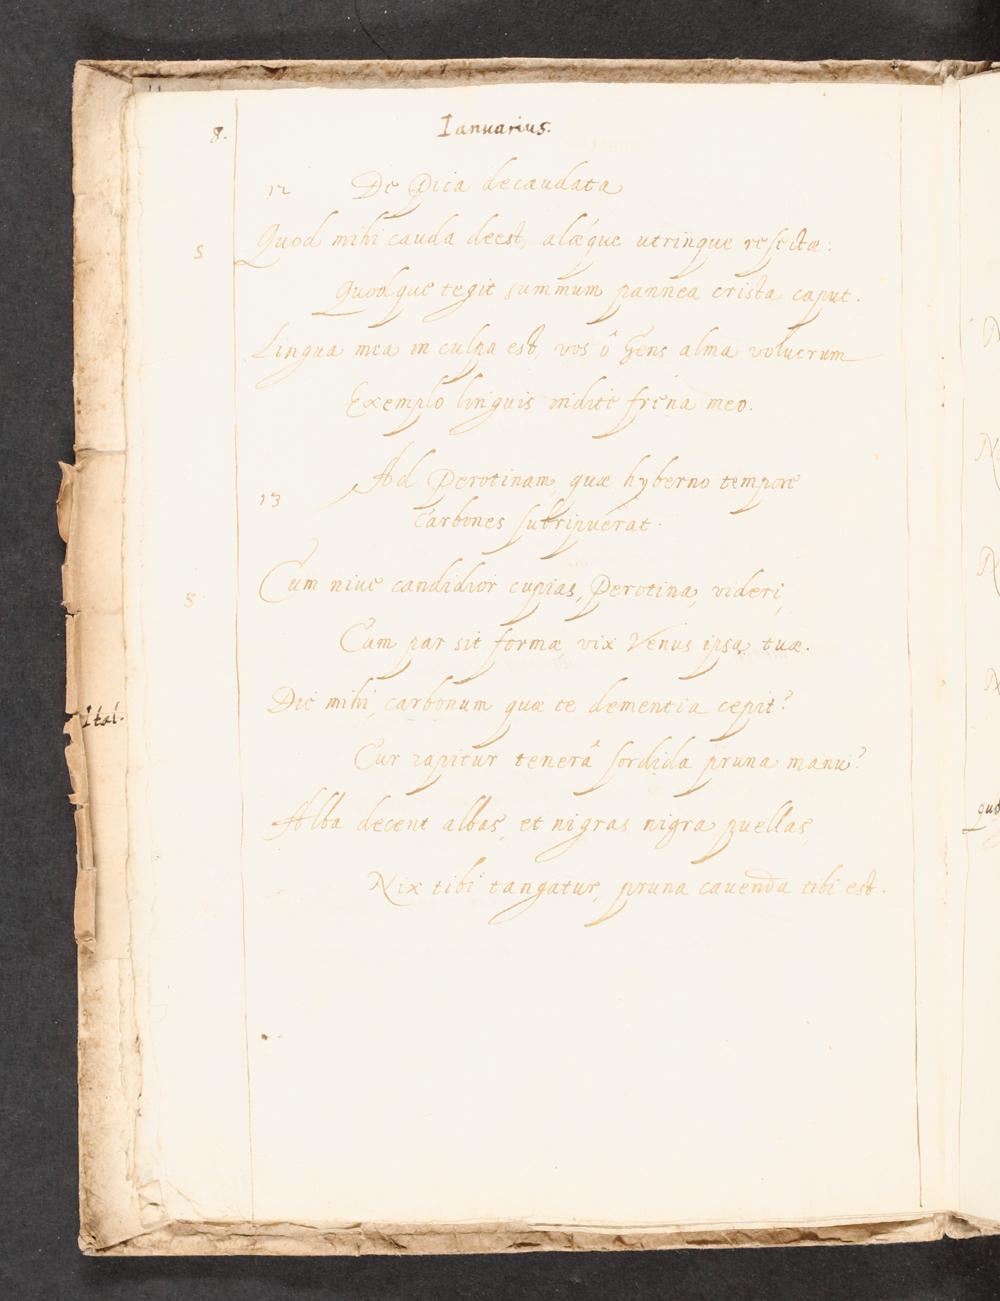 8.
Ianuarius.
12 De Pica decaudata
5
Quod mihi cauda deest, alæque utrinque resectæ:
Quodque tegit summum pannea crista caput.
Lingua mea in culpa est, vos ô Gens alma volucrum
Exemplo linguis indite frena meo.
13
Ad Perotinam, quæ hyberno tempore
Carbones subripuerat.
5
Cum niue candidior cupias, Perotina, videri,
Cum par sit formæ vix Venus ipsa tuæ.
Dic mihi, carbonum quæ te dementia cepit?
Ital.
Cur rapitur tenerâ sordida pruna manu?
Alba decent albas, et nigras nigra puellas,
Nix tibi tangatur, pruna cauenda tibi est.